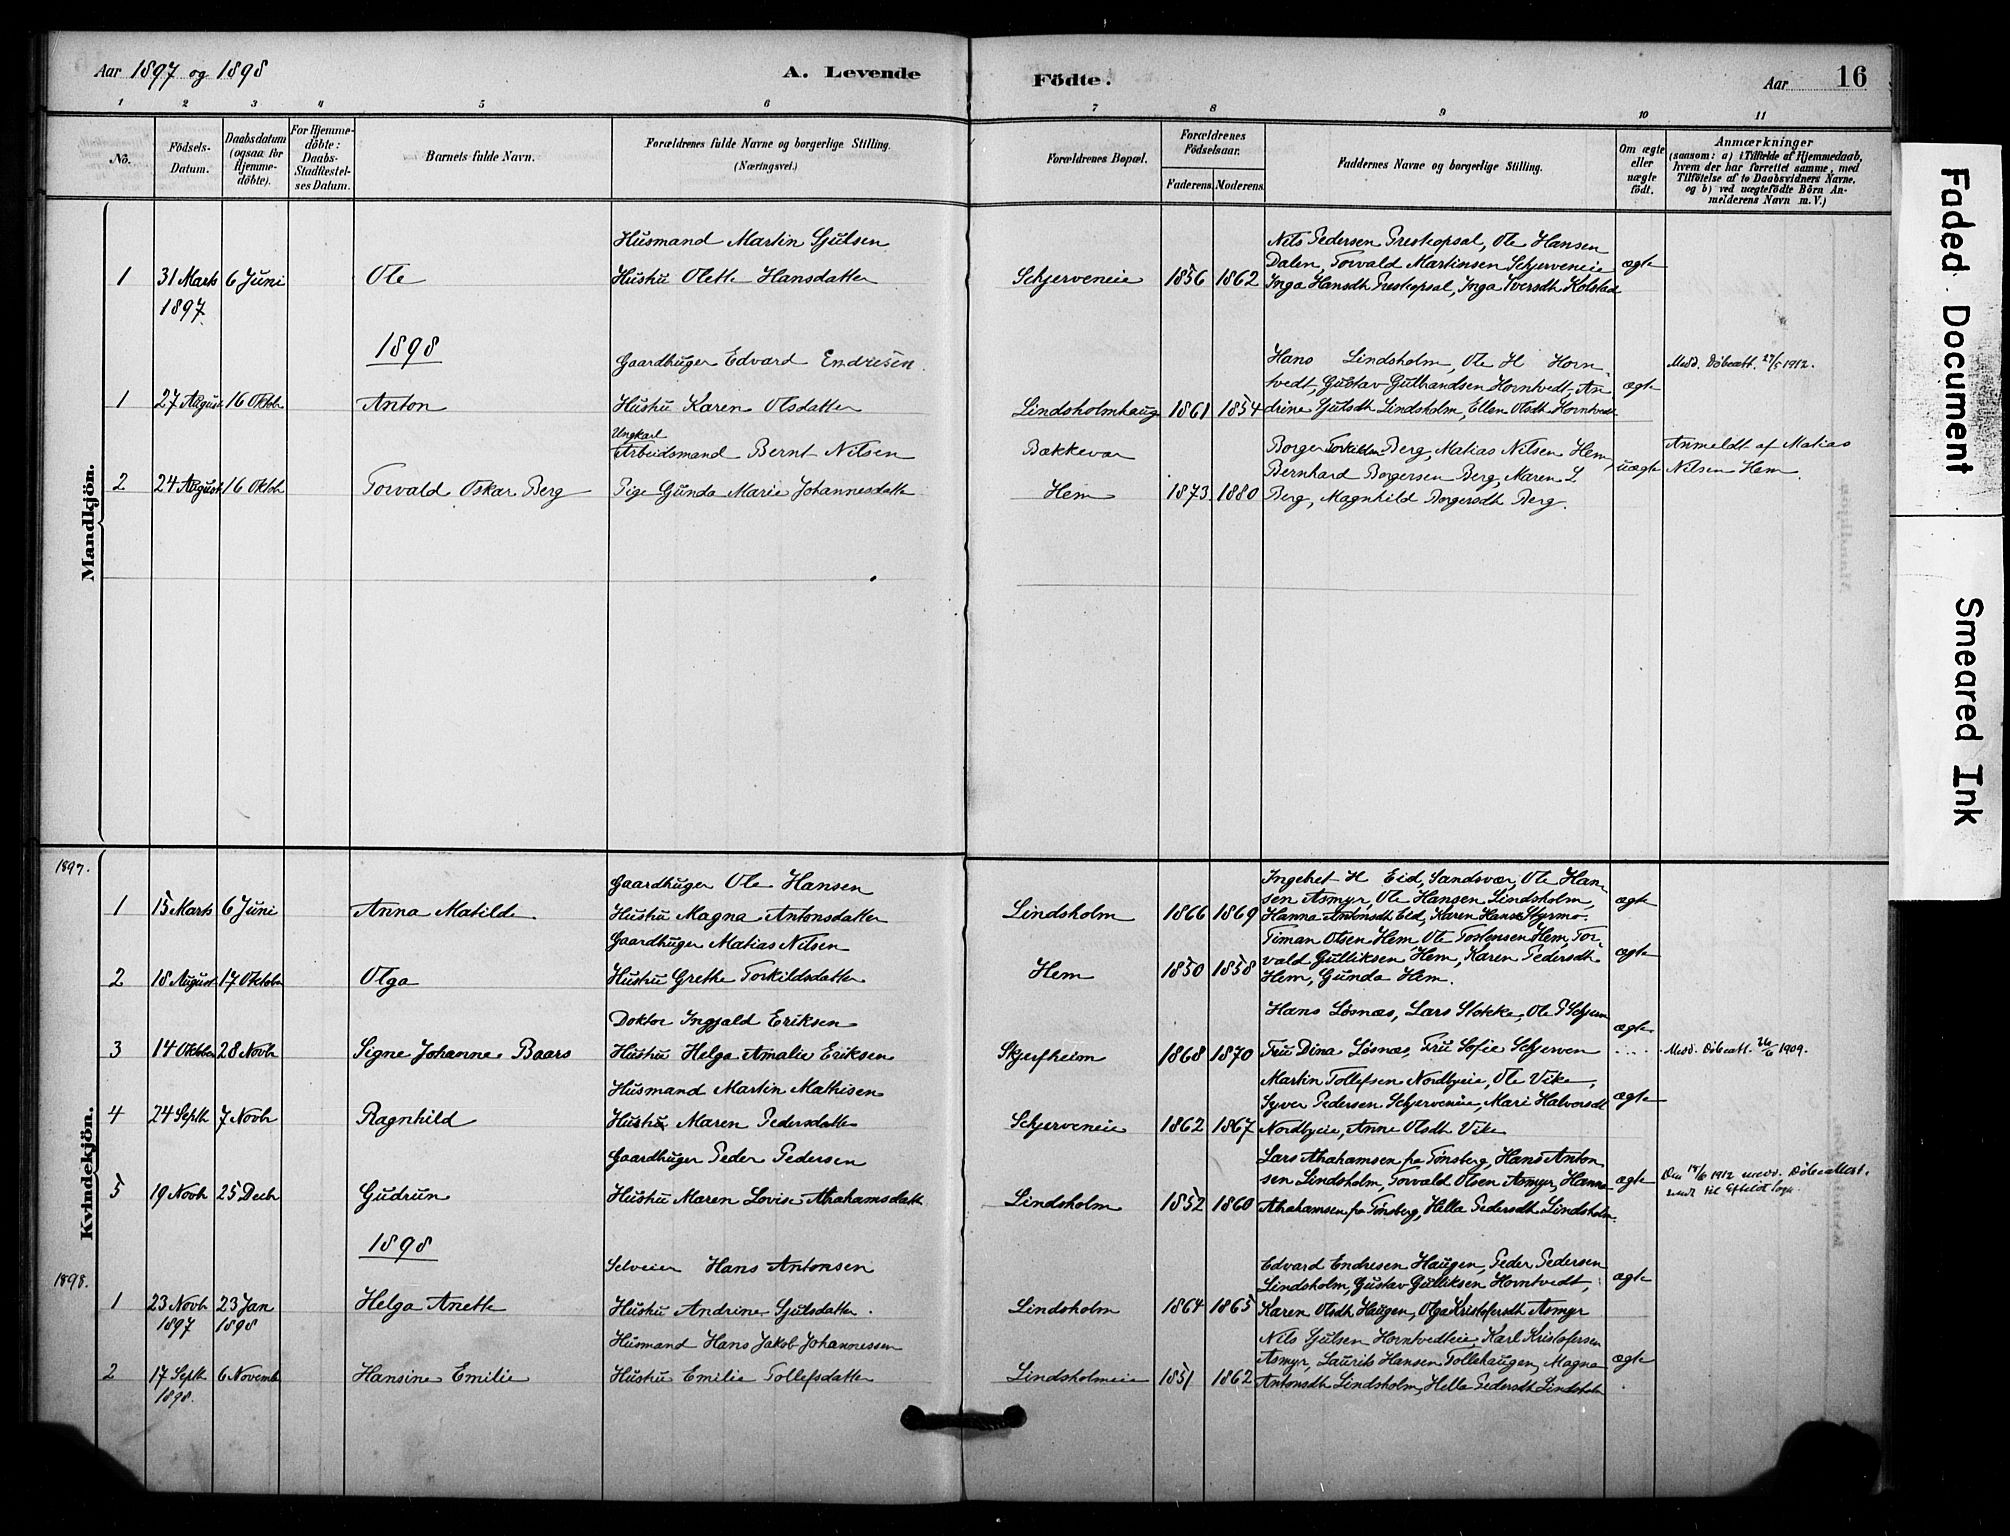 Aar 1897 og 1898 A. Levende Födte. Aar 16
1 2 3 4 5 6 7 8 9 10 11
No. Födsels-Datum. Daabsdatum (ogsaa for Hjemme-döbte). For Hjemme-döbte: Daabs-Stadfæstel-ses Datum. Barnets fulde Navn. Forældrenes fulde Navne og borgerlige Stilling. (Næringsvei.) Forældrenes Bopæl. Forældrenes Födselsaar. Faderens. Moderens. Faddernes Navne og borgerlige Stilling. Om ægte eller uægte födt. Anmærkninger (saasom: a) i Tilfælde af Hjemmedaab, hvem der har forrettet samme, med Tilföielse af to Daabsvidners Navne, og b) ved uægtefödte Börn Anmelderens Navn m. V.)
Mandkjön.
Husmand Martin Gjulsen Nils Pedersen Prestopsal, Ole Hansen
1 31 Marts 6 Juni Ole Hustru Olette Hansdatter Schjerveneie 1856 1862 Dalen, Torvald Martinsen Schjerveneie ægte
1897. Inga Hansdt Prestopsal, Inga Iversdt Kolstad
1898
Gaardbruger Edvard Endresen. Hans Lindsholm, Ole H Horn- Medd. Döbeatt. 27/5 1912.
1 27 August 16 Oktob Anton Hustru Karen Olsdatter Lindsholmhaug 1861 1854 tvedt, Gustav Gulbrandsen Horntvedt, An- ægte
drine Gjulsdt Lindsholm, Ellen Olsdt Horntvedt
Ungkarl
Arbeidsmand Bernt Nilsen Bakkevar Borger Torkildsen Berg, Matias Nilsen Hem, Anmeldt af Matias
2 24 August 16 Oktob Torvald Oskar Berg Pige Gunda Marie Johannesdatte Hem 1873 1880 Bernhard Borgersen Berg, Maren L uægte Nilsen Hem
Berg, Magnhild Borgersdt Berg.
Kvindekjön.
1897.
Gaardbruger Ole Hansen Ingebret H Eid, Sandsvær, Ole Han-
1 15 Marts 6 Juni Anna Matilde Hustru Magna Antonsdatter Lindsholm 1866 1869 sen Asmyr, Ole Hansen Lindsholm, ægte
Hanna Antonsdt Eid, Karen Hansd Styrmo.
Gaardbruger Matias Nilsen Timan Olsen Hem, Ole Tostensen Hem, Tor-
2 18 August 17 Oktober Olga Hustru Grethe Torkildsdatter Hem 1850 1858 vald Gulliksen Hem, Karen Pedersdt ægte
Hem, Gunda Hem.
Doktor Ingjald Eriksen Hans Lösnæs, Lars Stokke, Ole P Schjerven
3 14 Oktober 28 Novb Signe Johanne Baars Hustru Helga Amalie Eriksen Skjerfheim 1868 1870 Fru Dina Lösnæs, Fru Sofie Schjerven ægte Medd. Döbeatt. 26/6 1909.
Husmand Martin Mathisen Martin Tollefsen Nordbyeie, Ole Vike,
4 24 Septb 7 Novb Ragnhild Hustru Maren Pedersdatter Schjerveneie 1862 1867 Syver Pedersen Schjerveneie, Mari Halvorsdt ægte
Nordbyeie, Anne Olsdt Vike
Gaardbruger Peder Pedersen Lars Abrahamsen fra Tönsberg, Hans Anton
5 19 Novb 25 Decb Gudrun Hustru Maren Lovise Abrahamsdatt Lindsholm 1852 1860 sen Lindsholm, Torvald Olsen Asmyr, Hanna ægte Den 18/6 1912 medd. Döbeattest.
Abrahamsen fra Tönsberg, Hella Pedersdt Lindsholm. sendt til
1898
1898.
Selveier Hans Antonsen Edvard Endresen Haugen, Peder Pedersen
1 23 Novb 23 Jan Helga Anette Hustru Andrine Gjulsdatter. Lindsholm 1864 1865 Lindsholm, Gustav Gulliksen Horntvedt, ægte
1897 1898 Karen Olsdt Haugen, Olga Kristofersdt Asmyr
Husmand Hans Jakob Johannessen Nils Gjulsen Horntvedteie, Karl Kristofersen
2 17 Septb 6 Novemb Hansine Emilie Hustru Emilie Tollefsdatter Lindsholmeie 1851 1862 Asmyr, Laurits Hansen Tollehaugen, Magna ægte
1898. Antonsdt Lindsholm, Hella Pedersdt Lindsholm
Faded Document
Smeared Ink